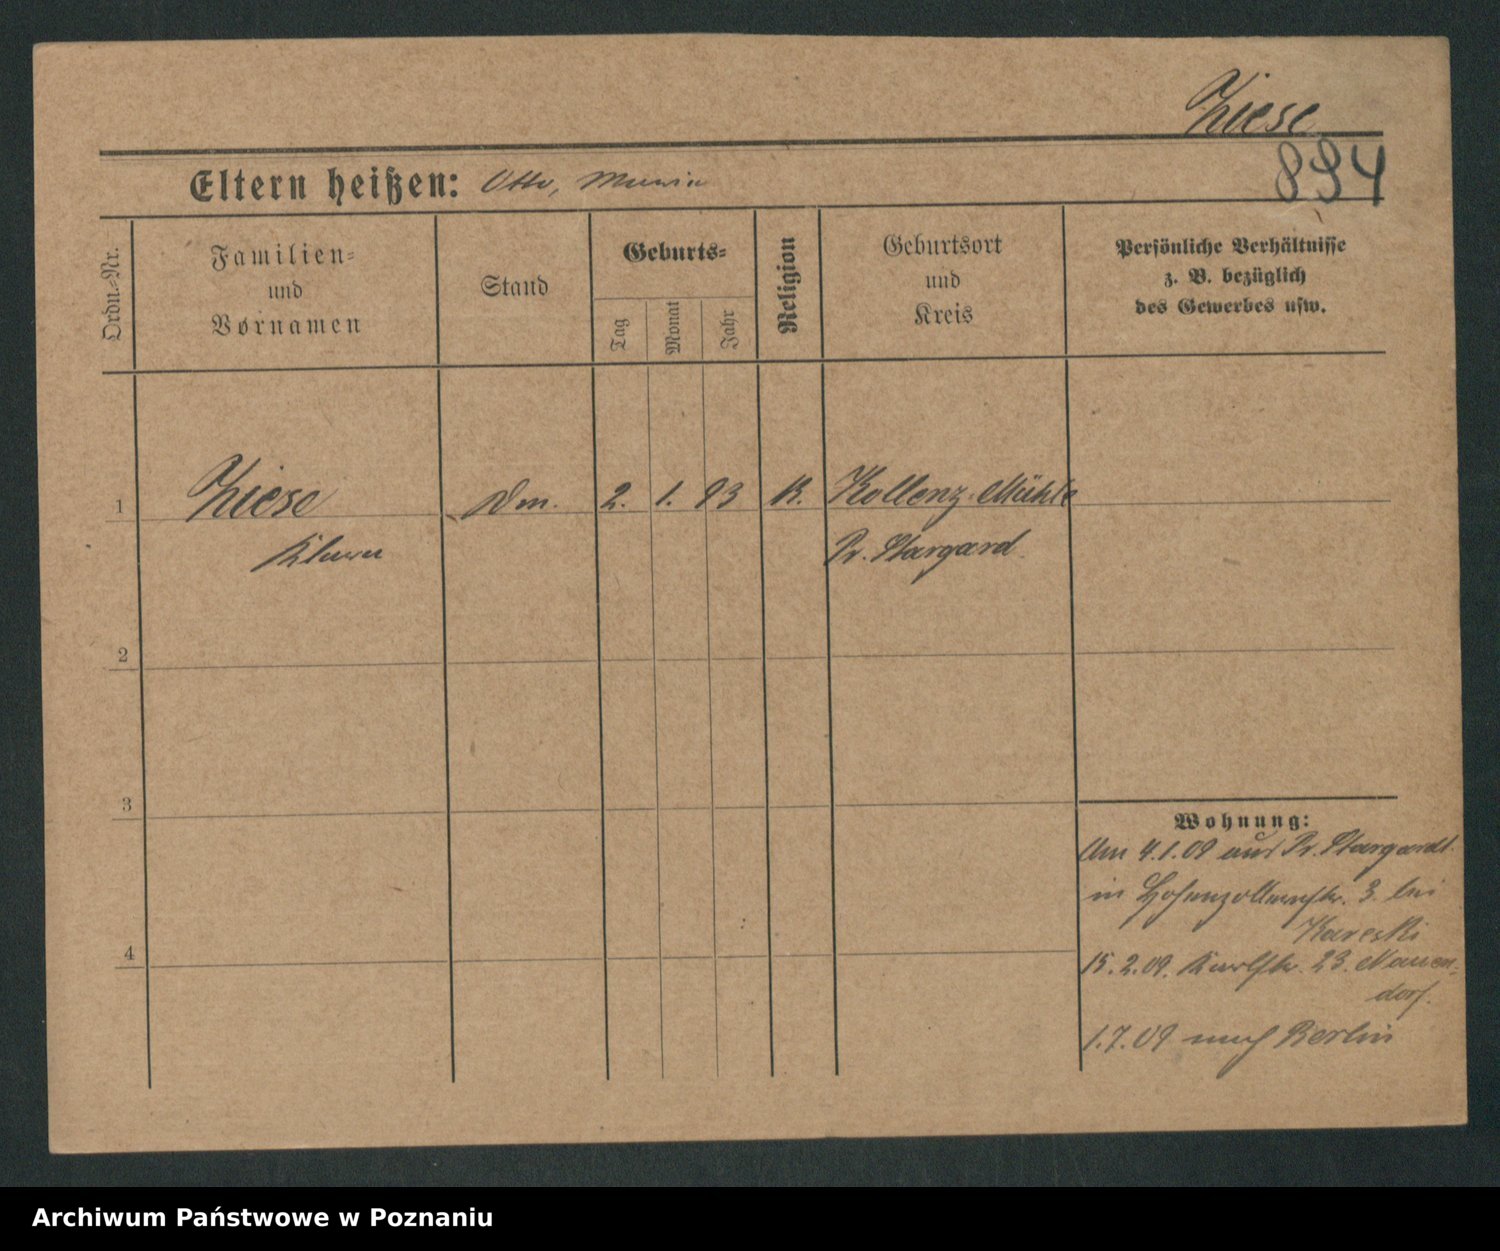 Ziese
894
Eltern heißen: Otto, Maria
Ordn.-Nr.
Familien-
und
Vornamen
Stand
Geburts-
Tag
Monat
Jahr
Religion
Geburtsort
und
Kreis
Persönliche Verhältnisse
z. B. bezüglich
des Gewerbes usw.
1 Ziese 2. 1. 93 K. Kollenz-Mühle
Klara Pr. Stargard
2
3
4
Wohnung:
Am 4.1.09 aus Pr. Stargardt
in Hohenzollernstr. 3. bei
Kareski
15.2.09. Karlstr. 23. Nauen-
dorf.
1.7.09 nach Berlin
Archiwum Państwowe w Poznaniu